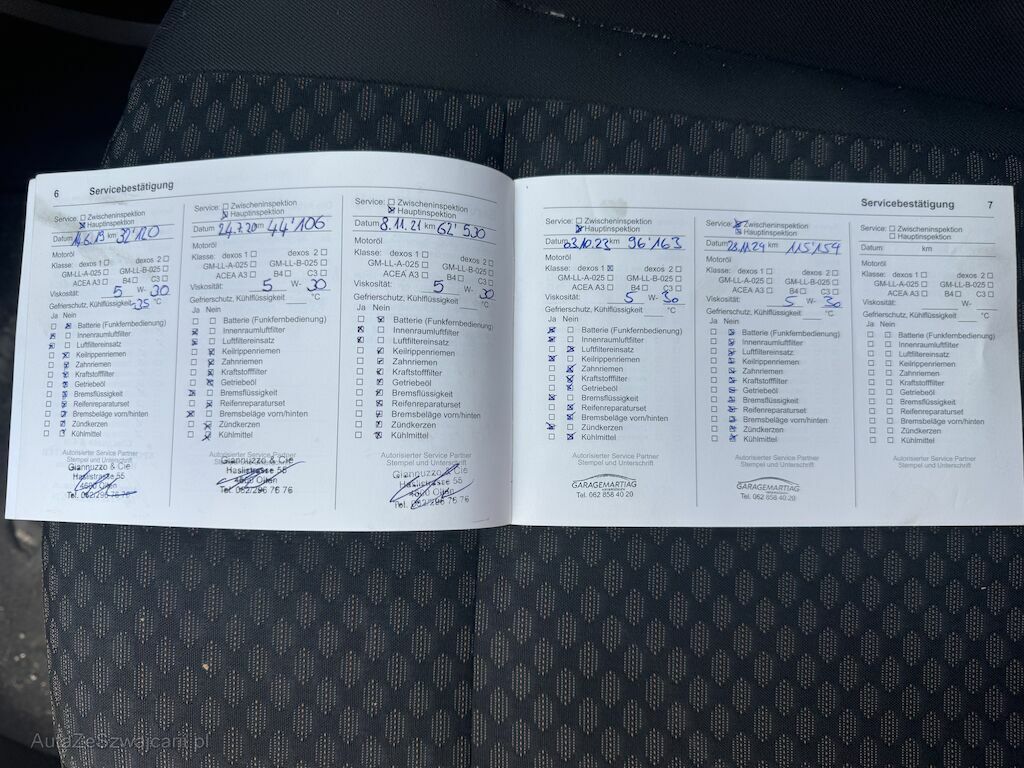 6 Servicebestätigung
Service: Zwischeninspektion
Hauptinspektion
Datum 14.6.19 km 32'120
Motoröl
Klasse: dexos 1 dexos 2
GM-LL-A-025 GM-LL-B-025
ACEA A3 B4 C3
Viskosität: 5 W- 30
Gefrierschutz, Kühlflüssigkeit -35 °C
Ja Nein
Batterie (Funkfernbedienung)
Innenraumluftfilter
Luftfiltereinsatz
Keilrippenriemen
Zahnriemen
Kraftstofffilter
Getriebeöl
Bremsflüssigkeit
Reifenreparaturset
Bremsbeläge vorn/hinten
Zündkerzen
Kühlmittel
Autorisierter Service Partner
Stempel und Unterschrift
Giannuzzo & Cie
Haslistrasse 55
4600 Olten
Tel. 062/296 76 76
Service: Zwischeninspektion
Hauptinspektion
Datum 24.7.20 km 44'106
Motoröl
Klasse: dexos 1 dexos 2
GM-LL-A-025 GM-LL-B-025
ACEA A3 B4 C3
Viskosität: 5 W- 30
Gefrierschutz, Kühlflüssigkeit °C
Ja Nein
Batterie (Funkfernbedienung)
Innenraumluftfilter
Luftfiltereinsatz
Keilrippenriemen
Zahnriemen
Kraftstofffilter
Getriebeöl
Bremsflüssigkeit
Reifenreparaturset
Bremsbeläge vorn/hinten
Zündkerzen
Kühlmittel
Autorisierter Service Partner
Stempel und Unterschrift
Giannuzzo & Cie
Haslistrasse 55
4600 Olten
Tel. 062/296 76 76
Service: Zwischeninspektion
Hauptinspektion
Datum 8.11.21 km 62'530
Motoröl
Klasse: dexos 1 dexos 2
GM-LL-A-025 GM-LL-B-025
ACEA A3 B4 C3
Viskosität: 5 W- 30
Gefrierschutz, Kühlflüssigkeit °C
Ja Nein
Batterie (Funkfernbedienung)
Innenraumluftfilter
Luftfiltereinsatz
Keilrippenriemen
Zahnriemen
Kraftstofffilter
Getriebeöl
Bremsflüssigkeit
Reifenreparaturset
Bremsbeläge vorn/hinten
Zündkerzen
Kühlmittel
Autorisierter Service Partner
Stempel und Unterschrift
Giannuzzo & Cie
Haslistrasse 55
4600 Olten
Tel. 062/296 76 76
Servicebestätigung 7
Service: Zwischeninspektion
Hauptinspektion
Datum 03.10.23 km 96'163
Motoröl
Klasse: dexos 1 dexos 2
GM-LL-A-025 GM-LL-B-025
ACEA A3 B4 C3
Viskosität: 5 W- 30
Gefrierschutz, Kühlflüssigkeit °C
Ja Nein
Batterie (Funkfernbedienung)
Innenraumluftfilter
Luftfiltereinsatz
Keilrippenriemen
Zahnriemen
Kraftstofffilter
Getriebeöl
Bremsflüssigkeit
Reifenreparaturset
Bremsbeläge vorn/hinten
Zündkerzen
Kühlmittel
Autorisierter Service Partner
Stempel und Unterschrift
GARAGEMARTIAG
Tel. 062 858 40 20
Service: Zwischeninspektion
Hauptinspektion
Datum 28.11.24 km 115'154
Motoröl
Klasse: dexos 1 dexos 2
GM-LL-A-025 GM-LL-B-025
ACEA A3 B4 C3
Viskosität: 5 W- 30
Gefrierschutz, Kühlflüssigkeit °C
Ja Nein
Batterie (Funkfernbedienung)
Innenraumluftfilter
Luftfiltereinsatz
Keilrippenriemen
Zahnriemen
Kraftstofffilter
Getriebeöl
Bremsflüssigkeit
Reifenreparaturset
Bremsbeläge vorn/hinten
Zündkerzen
Kühlmittel
Autorisierter Service Partner
Stempel und Unterschrift
GARAGEMARTIAG
Tel. 062 858 40 20
Service: Zwischeninspektion
Hauptinspektion
Datum km
Motoröl
Klasse: dexos 1 dexos 2
GM-LL-A-025 GM-LL-B-025
ACEA A3 B4 C3
Viskosität: W-
Gefrierschutz, Kühlflüssigkeit °C
Ja Nein
Batterie (Funkfernbedienung)
Innenraumluftfilter
Luftfiltereinsatz
Keilrippenriemen
Zahnriemen
Kraftstofffilter
Getriebeöl
Bremsflüssigkeit
Reifenreparaturset
Bremsbeläge vorn/hinten
Zündkerzen
Kühlmittel
Autorisierter Service Partner
Stempel und Unterschrift
AutaZeSzwajcarii.pl